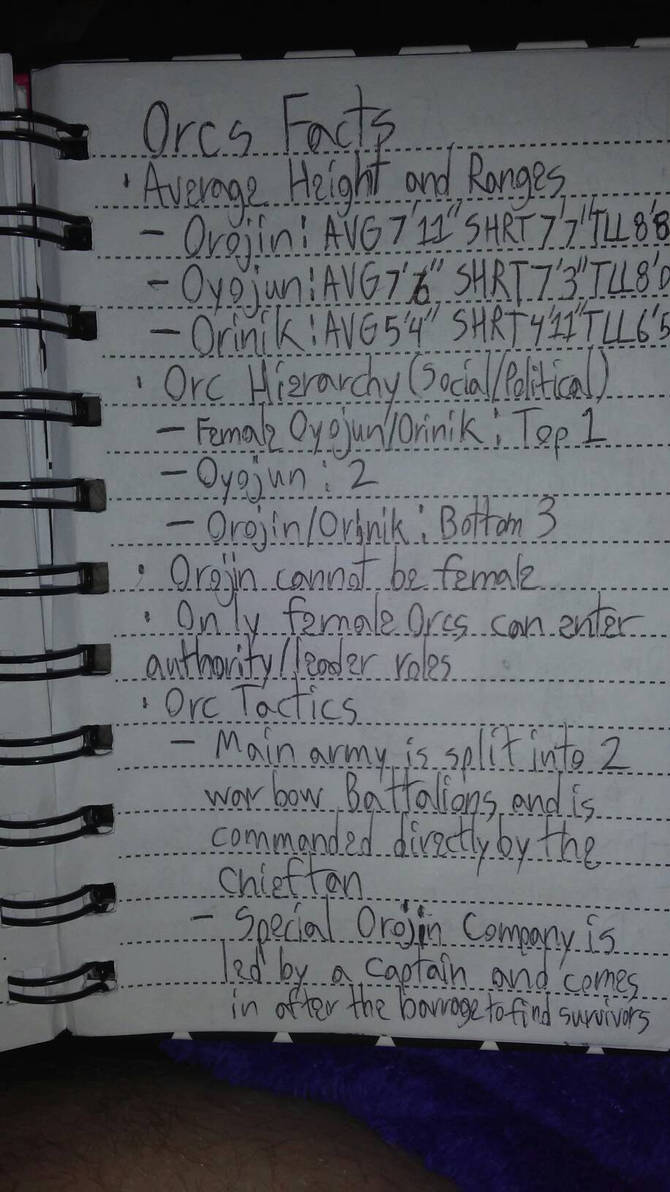 Orcs Facts
• Average Height and Ranges
- Orojin: AVG 7'11" SHRT 7'7" TLL 8'8
- Oyojun: AVG 7'6", SHRT 7'3" TLL 8'0
- Orinik: AVG 5'4", SHRT 4'11" TLL 6'5
• Orc Hierarchy (Social/Political)
- Female Oyojun/Orinik: Top 1
- Oyojun: 2
- Orojin/Orinik: Bottom 3
• Orojin cannot be female
• Only female Orcs can enter
authority/leader roles
• Orc Tactics
- Main army is split into 2
war bow Battalions and is
commanded directly by the
chieftan
- Special Orojin Company is
led by a captain and comes
in after the barrage to find survivors